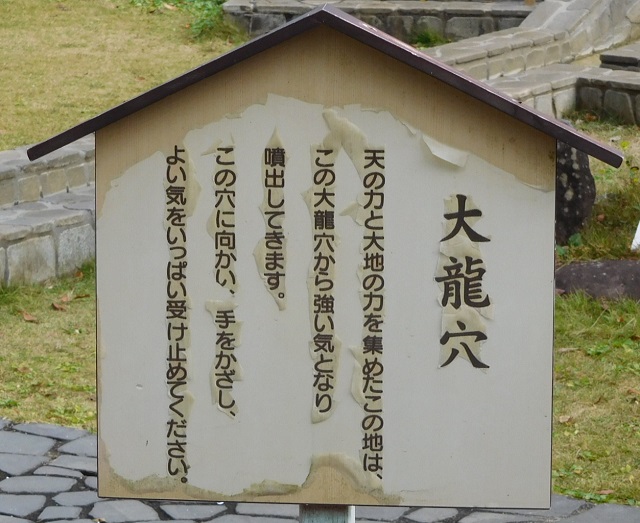 大龍穴
天の力と大地の力を集めたこの地は、
この大龍穴から強い気となり
噴出してきます。
この穴に向かい、手をかざし、
よい気をいっぱい受け止めてください。